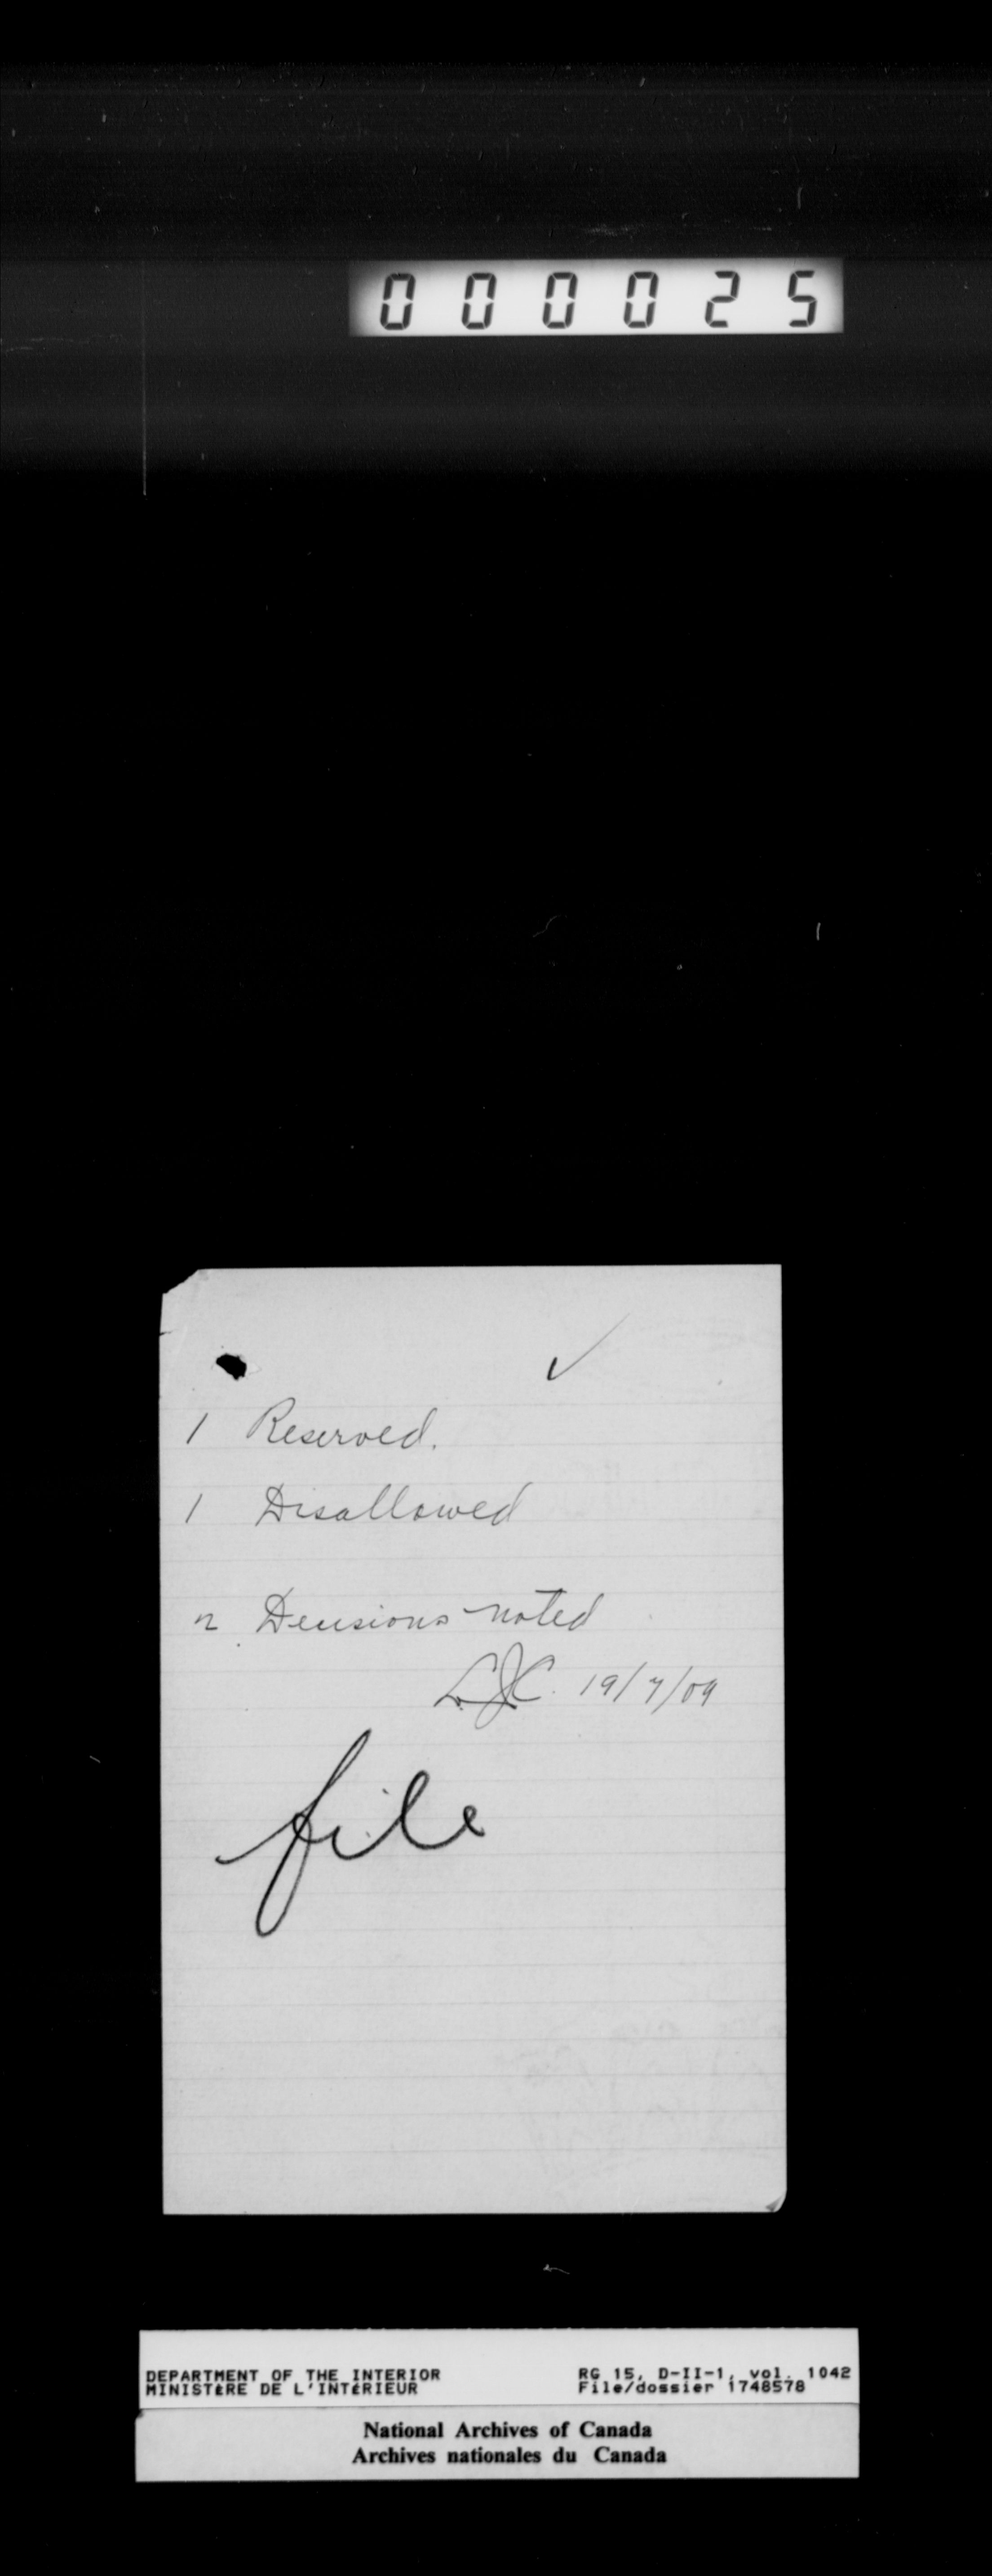 000025
✓
1 Reserved.
1 Disallowed
2 Decisions noted
L.J.C. 19/7/09
file
DEPARTMENT OF THE INTERIOR
MINISTÈRE DE L'INTÉRIEUR
RG 15, D-II-1, vol. 1042
File/dossier 1748578
National Archives of Canada
Archives nationales du Canada